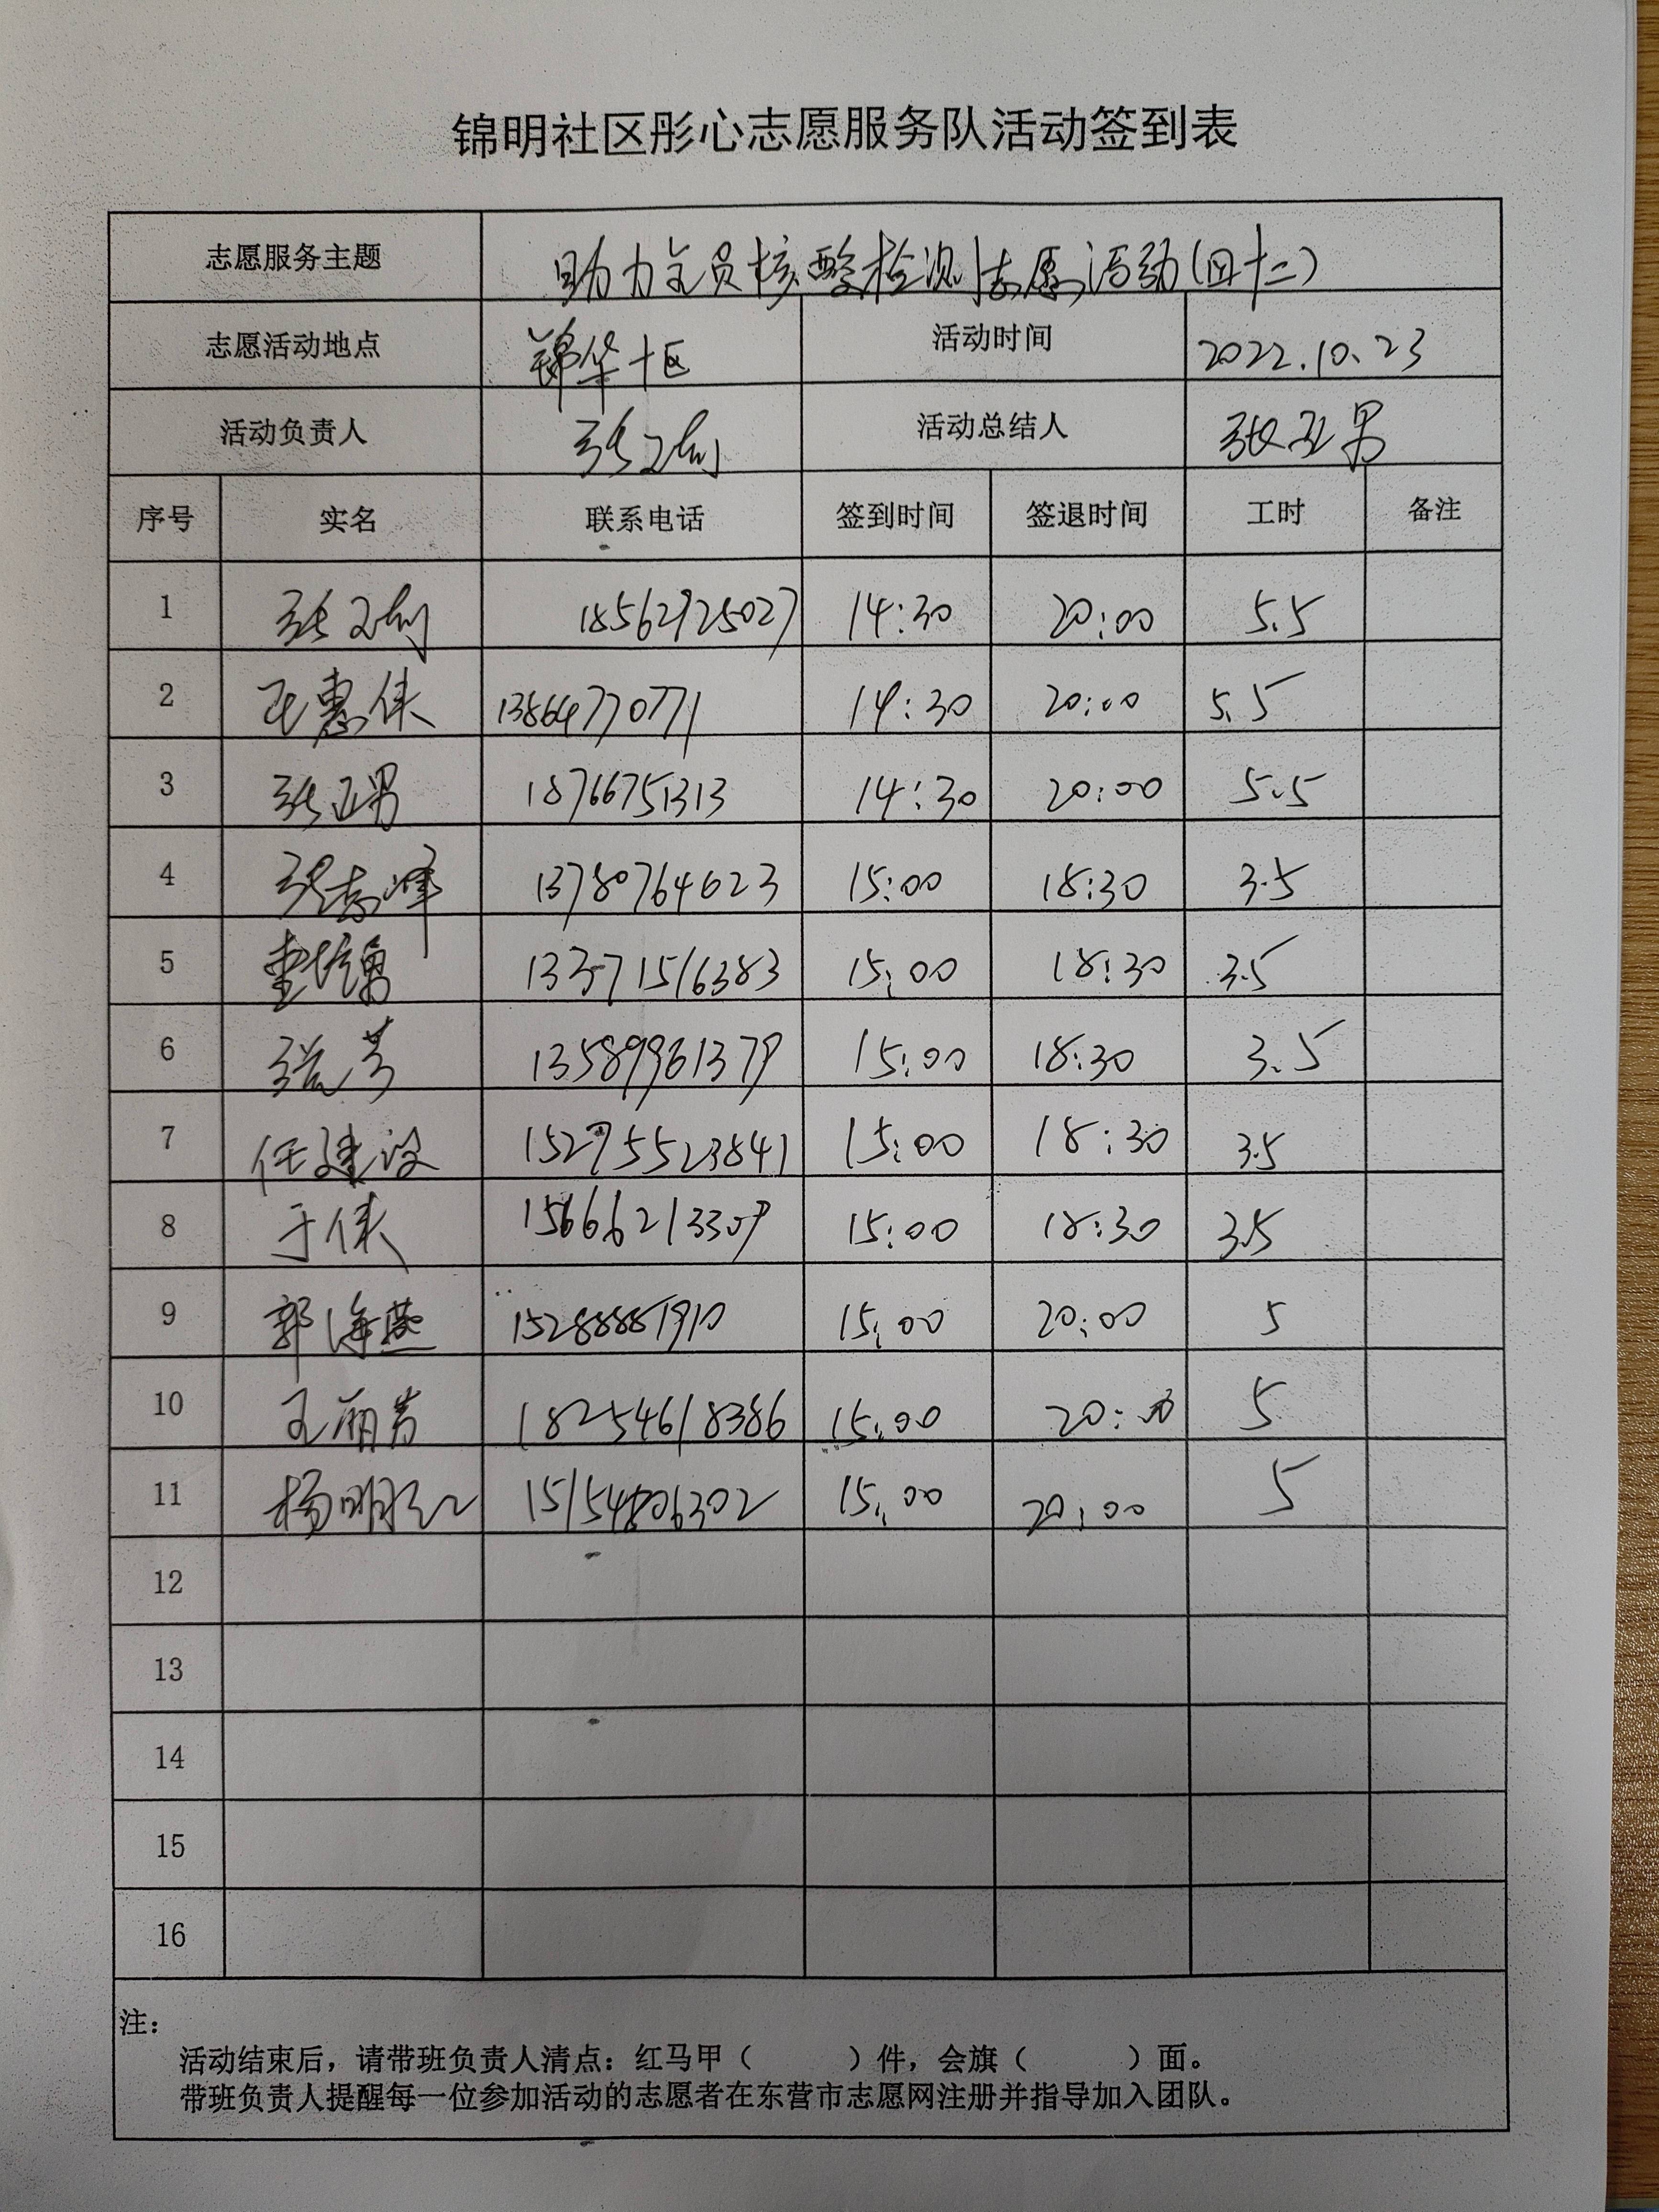 锦明社区彤心志愿服务队活动签到表
志愿服务主题 助力全员核酸检测志愿活动(四十二)
志愿活动地点 锦华十区 活动时间 2022.10.23
活动负责人 张文剑 活动总结人 张亚男
序号 实名 联系电话 签到时间 签退时间 工时 备注
1 张文剑 18562925027 14:30 20:00 5.5
2 王惠侠 13864770771 14:30 20:00 5.5
3 张亚男 18766751313 14:30 20:00 5.5
4 13780764623 15:00 18:30 3.5
5 13371516383 15:00 18:30 3.5
6 13589961379 15:00 18:30 3.5
7 任建设 15295523841 15:00 18:30 3.5
8 于侠 15666213309 15:00 18:30 3.5
9 郭海燕 15288881910 15:00 20:00 5
10 王丽芳 18254618386 15:00 20:00 5
11 杨明红 15154806302 15:00 20:00 5
12
13
14
15
16
注：
活动结束后，请带班负责人清点：红马甲（ ）件，会旗（ ）面。
带班负责人提醒每一位参加活动的志愿者在东营市志愿网注册并指导加入团队。